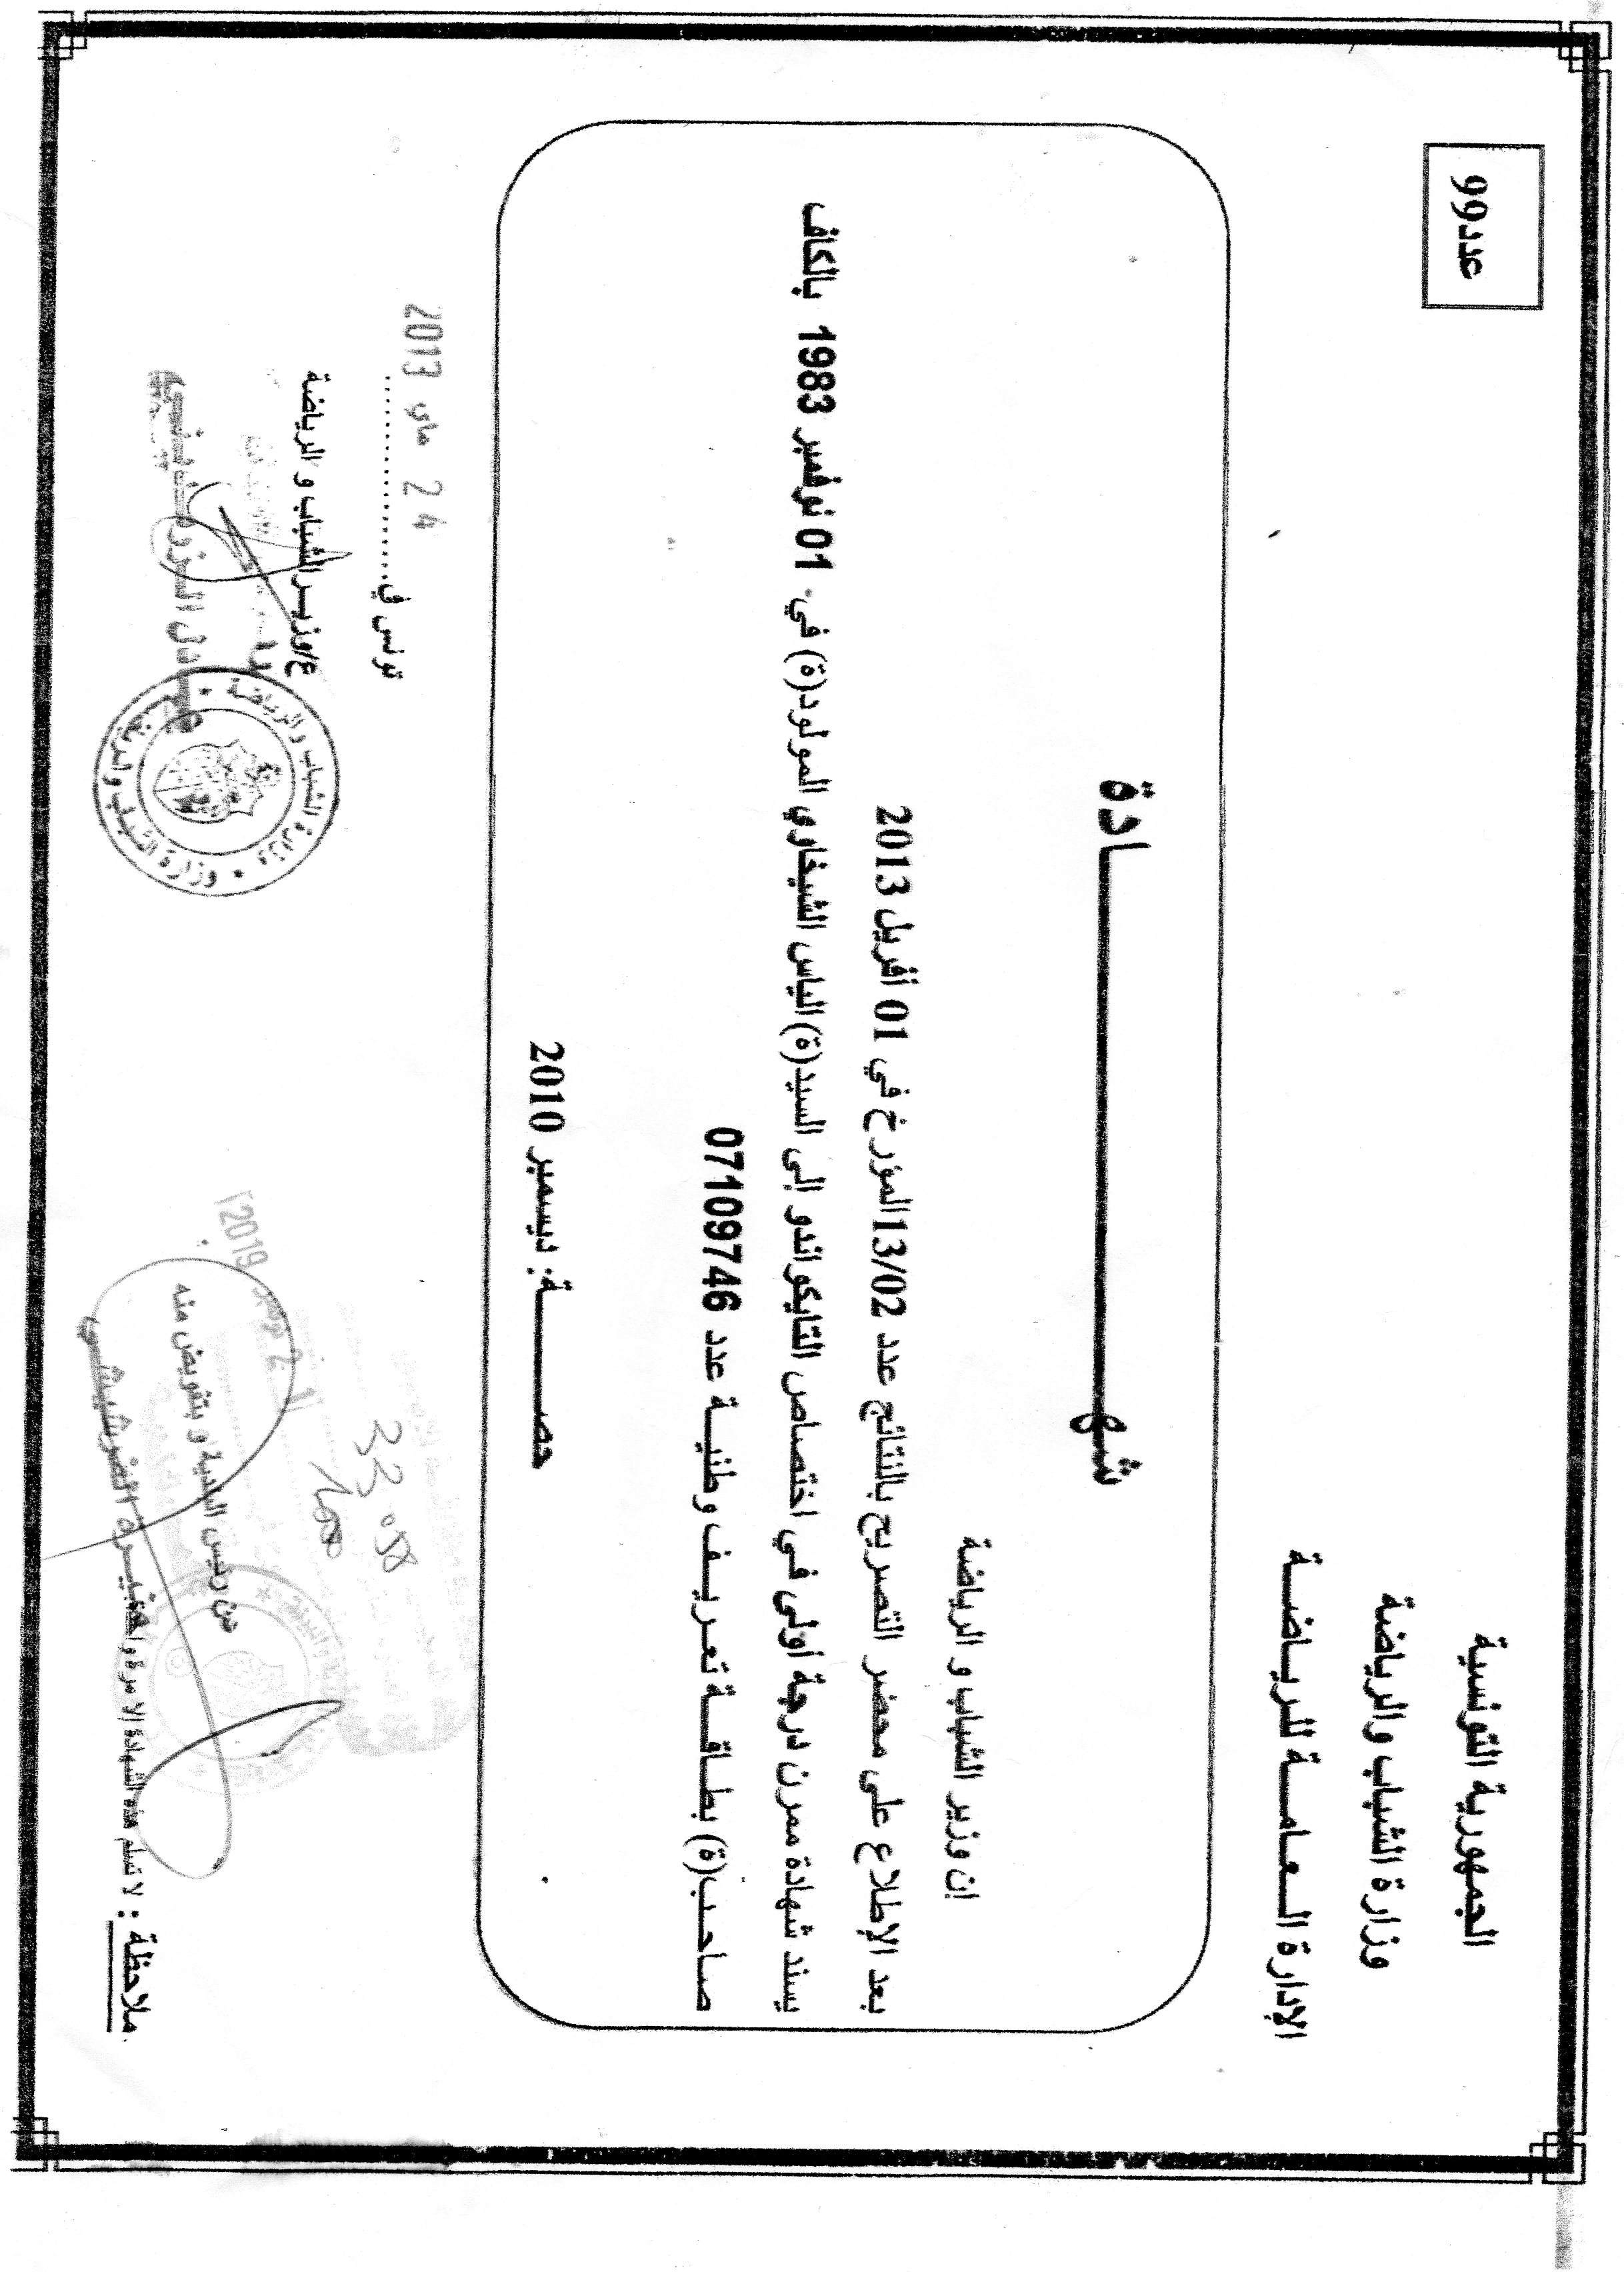 الجمهورية التونسية
وزارة الشباب والرياضة
الإدارة الـعـامـــة للريـاضــة
عدد99
شهــــــــــــادة
إن وزير الشباب و الرياضة
بعد الإطلاع على محضر التصريح بالنتائج عدد 13/02المؤرخ في 01 أفريل 2013
يسند شهادة ممرن درجة أولى في اختصاص التايكواندو إلى السيد(ة) الياس الشيخاوي المولود(ة) في 01 نوفمبر 1983 بالكاف
صاحب(ة) بطـاقــة تعريــف وطنيــة عدد 07109746
حصـــــــة: ديسمبر 2010
تونس في
24 ماي 2013
ع/وزيـر الشباب و الرياضة
وزارة الشباب والرياضة
2019
عن رئيس البلدية و بتفويض منه
ملاحظة : لا تسلم هذه الشهادة إلا مرة واحدة